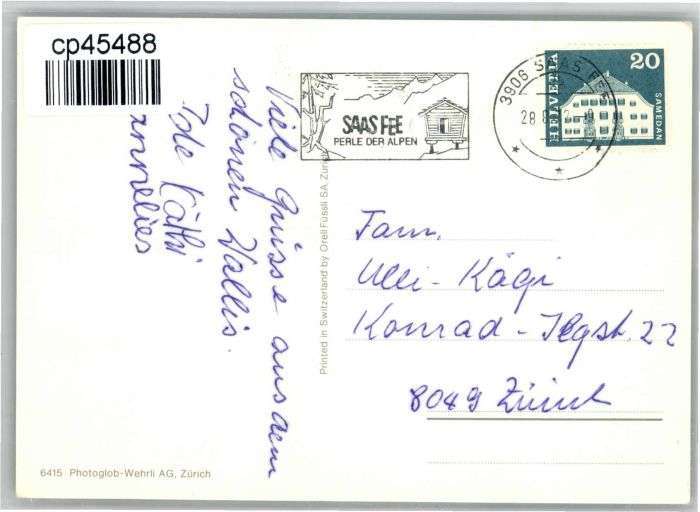 cp45488
Viele Grüsse aus dem
schönen Wallis.
Käthi
Annelies
SAAS FEE
PERLE DER ALPEN
3906 SAAS FEE
28 8
HELVETIA
20
SAMEDAN
Printed in Switzerland by Orell Füssli SA, Zürich
Fam.
Ulli-Kägi
Konrad-Ilgst. 22
8049 Zürich
6415 Photoglob-Wehrli AG, Zürich